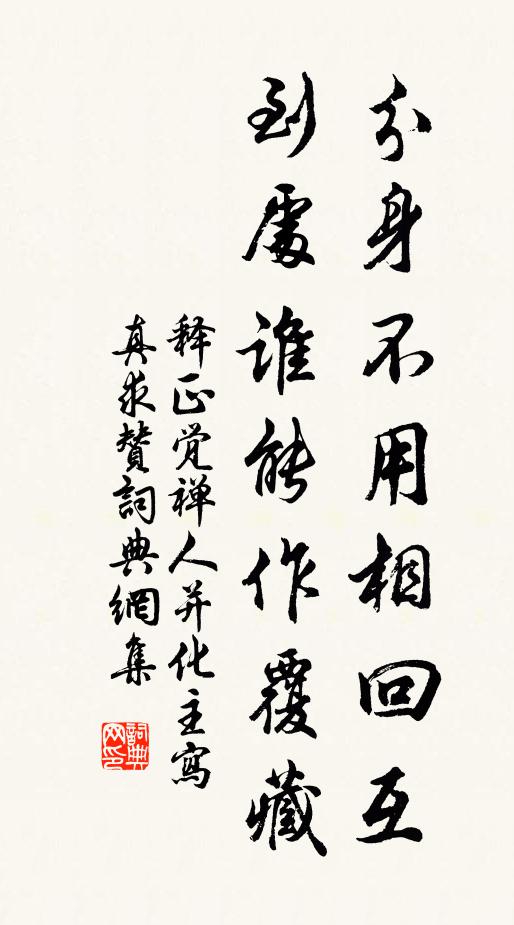 分身不用相回互
到處誰能作覆藏
释正觉禅人并化主寫
真求贊詞典網集
詞典网印